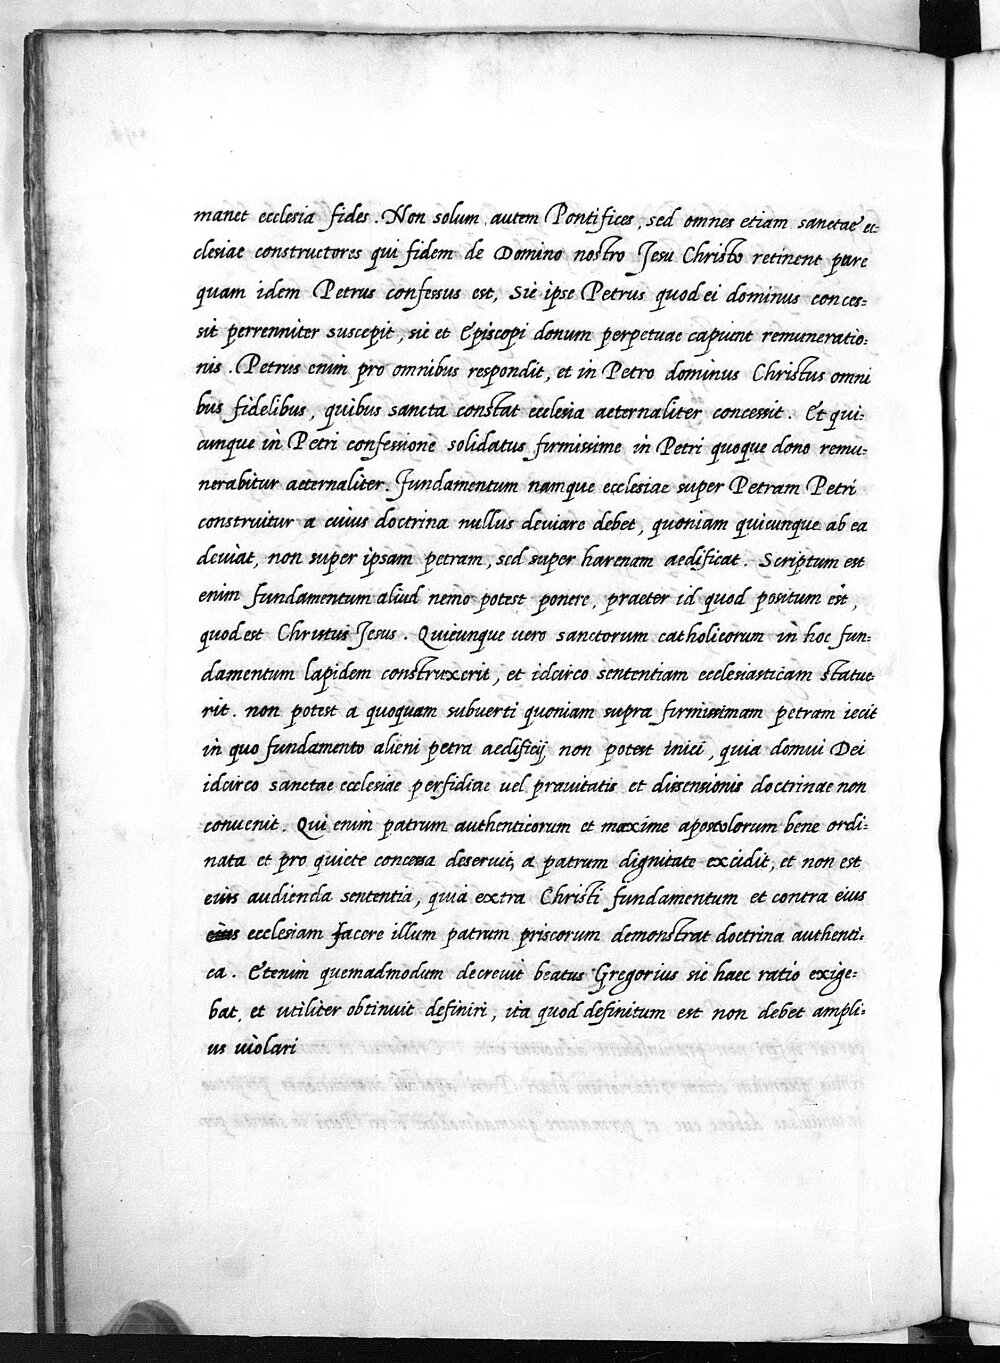 manet ecclesia fides. Non solum autem Pontifices, sed omnes etiam sanctae ec:
clesiae constructores qui fidem de Domino nostro Jesu Christo retinent pure
quam idem Petrus confessus est, Sic ipse Petrus quod ei dominus conces:
sit perrenniter suscepit, sic et Episcopi donum perpetuae capiunt remuneratio:
nis. Petrus enim pro omnibus respondit, et in Petro dominus Christus omni
bus fidelibus, quibus sancta constat ecclesia aeternaliter concessit. Et qui:
cunque in Petri confessione solidatus firmissime in Petri quoque dono remu:
nerabitur aeternaliter. Fundamentum namque ecclesiae super Petram Petri
construitur a cuius doctrina nullus deviare debet, quoniam quicunque ab ea
deviat, non super ipsam petram, sed super harenam aedificat. Scriptum est
enim fundamentum aliud nemo potest ponere, praeter id quod positum est,
quod est Christus Jesus. Quicunque vero sanctorum catholicorum in hoc fun:
damentum lapidem construxerit, et idcirco sententiam ecclesiasticam statue
rit. non potest a quoquam subverti quoniam supra firmissimam petram iecit
in quo fundamento alieni petra aedificij non potest inici, quia domui Dei
idcirco sanctae ecclesiae perfidiae vel pravitatis et dissensionis doctrinae non
convenit. Qui enim patrum authenticorum et maxime apostolorum bene ordi:
nata et pro quiete concessa deseruit, a patrum dignitate excidit, et non est
eius audienda sententia, quia extra Christi fundamentum et contra eius
eius ecclesiam facere illum patrum priscorum demonstrat doctrina authenti:
ca. Etenim quemadmodum decrevit beatus Gregorius sic haec ratio exige:
bat, et utiliter obtinuit definiri, ita quod definitum est non debet ampli:
us violari